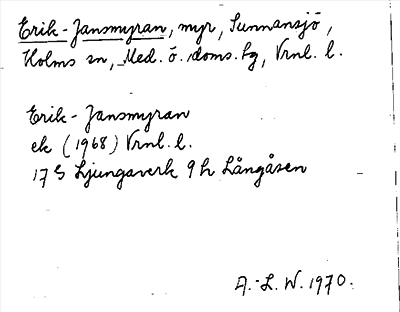 Erik-Jansmyran, myr, Sunnansjö,
Holms sn, Med. ö. doms.hg, Vrnl. l.
Erik-Jansmyran
ek (1968) Vrnl. l.
17 S Ljungaverk 9 h Långåsen
A.-L. W. 1970.